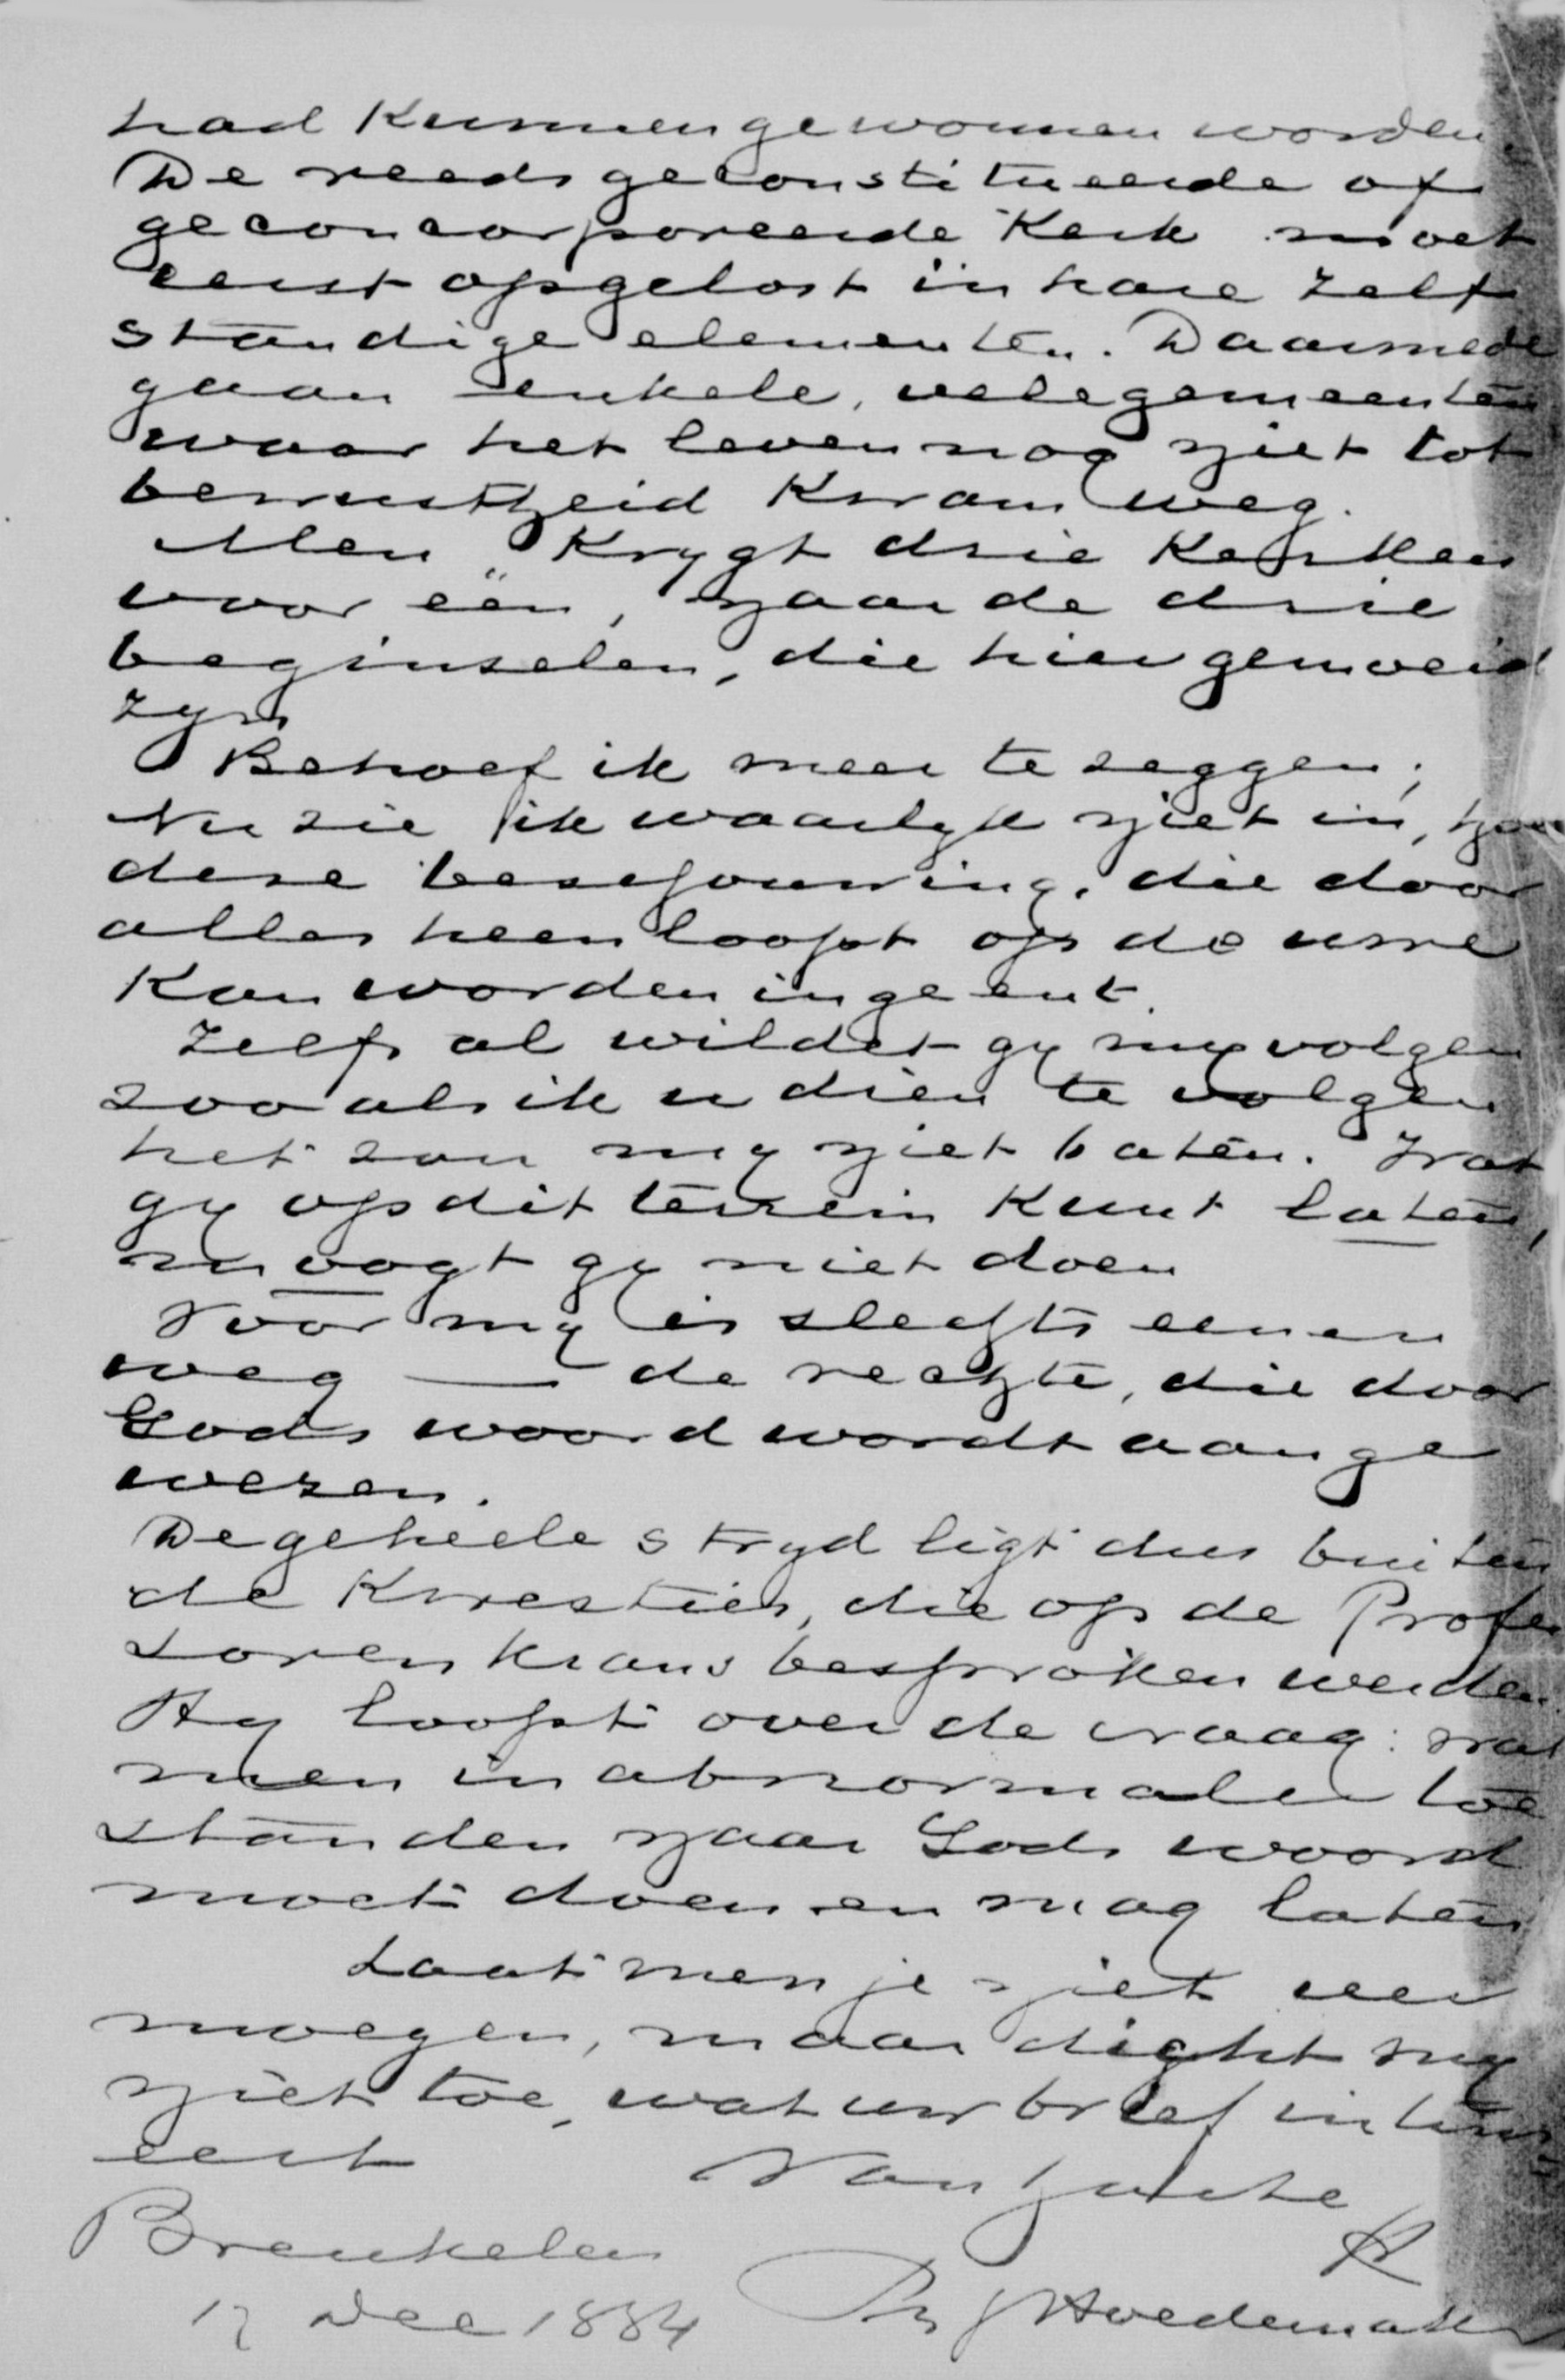 had Kunnen gewonnen worden.
De reeds geconstitueerde of
geconcorporeerde Kerk moet
eerst opgelost in hare zelf
standige elementen. Daarmede
gaan enkele, vele gemeenten
waar het leven nog niet tot
bewustheid Kwam weg.
Men Krygt drie Kerken
voor één, naar de drie
beginselen, die hier gemoeid
zyn
Behoef ik meer te zeggen;
Nu zie ik waarlyk niet in, hoe
deze beschouwing, die door
alles heen loopt op de uwe
Kan worden ingeent.
Zelfs al wildet gy my volgen
zooals ik u dien te volgen
het zou my niet baten. Wat
gy op dit terrein Kunt laten,
moogt gy niet doen
Voor my is slechts eenen
weg — de rechte, die door
Gods woord wordt aange
wezen.
De geheele stryd ligt dus buiten
de Kwesties, die op de Profes
soren krans besproken werden.
Hy loopt over de vraag: wat
men in abnormale toe
standen naar Gods woord
moet doen en mag laten
Laat men je niet ver
moegen, maar dicht my
niet toe, wat uw brief
Van harte
Breukelen
17 Dec 1884 Ph J Hoedemaker